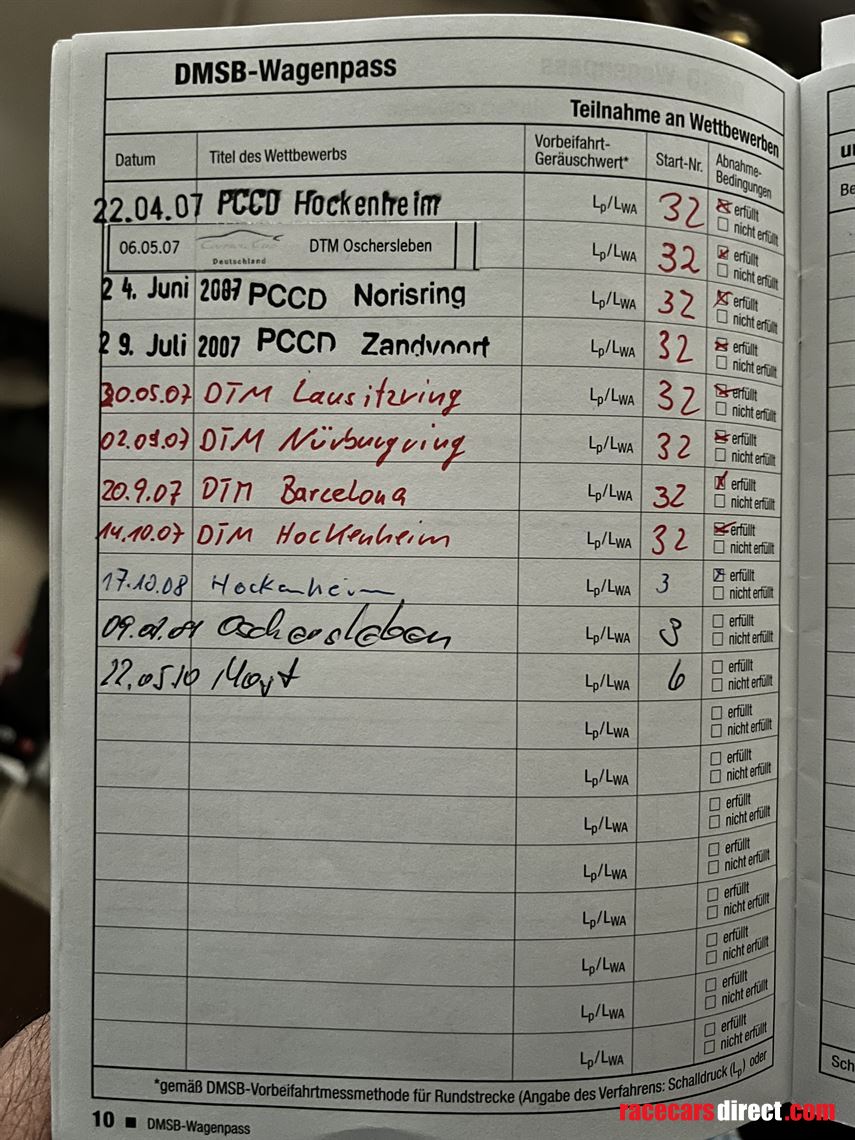 DMSB-Wagenpass
Teilnahme an Wettbewerben
Datum Titel des Wettbewerbs Vorbeifahrt-Geräuschwert* Start-Nr. Abnahme-Bedingungen
22.04.07 PCCD Hockenheim Lp/LWA 32 erfüllt
nicht erfüllt
06.05.07 Deutschland DTM Oschersleben Lp/LWA 32 erfüllt
nicht erfüllt
24. Juni 2007 PCCD Norisring Lp/LWA 32 erfüllt
nicht erfüllt
29. Juli 2007 PCCD Zandvoort Lp/LWA 32 erfüllt
nicht erfüllt
20.05.07 DTM Lausitzring Lp/LWA 32 erfüllt
nicht erfüllt
02.09.07 DTM Nürburgring Lp/LWA 32 erfüllt
nicht erfüllt
20.9.07 DTM Barcelona Lp/LWA 32 erfüllt
nicht erfüllt
14.10.07 DTM Hockenheim Lp/LWA 32 erfüllt
nicht erfüllt
17.10.08 Hockenheim Lp/LWA 3 erfüllt
nicht erfüllt
Oschersleben Lp/LWA 3 erfüllt
nicht erfüllt
22.0510 Lp/LWA 6 erfüllt
nicht erfüllt
Lp/LWA erfüllt
nicht erfüllt
Lp/LWA erfüllt
nicht erfüllt
Lp/LWA erfüllt
nicht erfüllt
Lp/LWA erfüllt
nicht erfüllt
Lp/LWA erfüllt
nicht erfüllt
Lp/LWA erfüllt
nicht erfüllt
Lp/LWA erfüllt
nicht erfüllt
Lp/LWA erfüllt
nicht erfüllt
*gemäß DMSB-Vorbeifahrtmessmethode für Rundstrecke (Angabe des Verfahrens: Schalldruck (Lp) oder
10 ■ DMSB-Wagenpass
u
Be
Sch
racecarsdirect.com